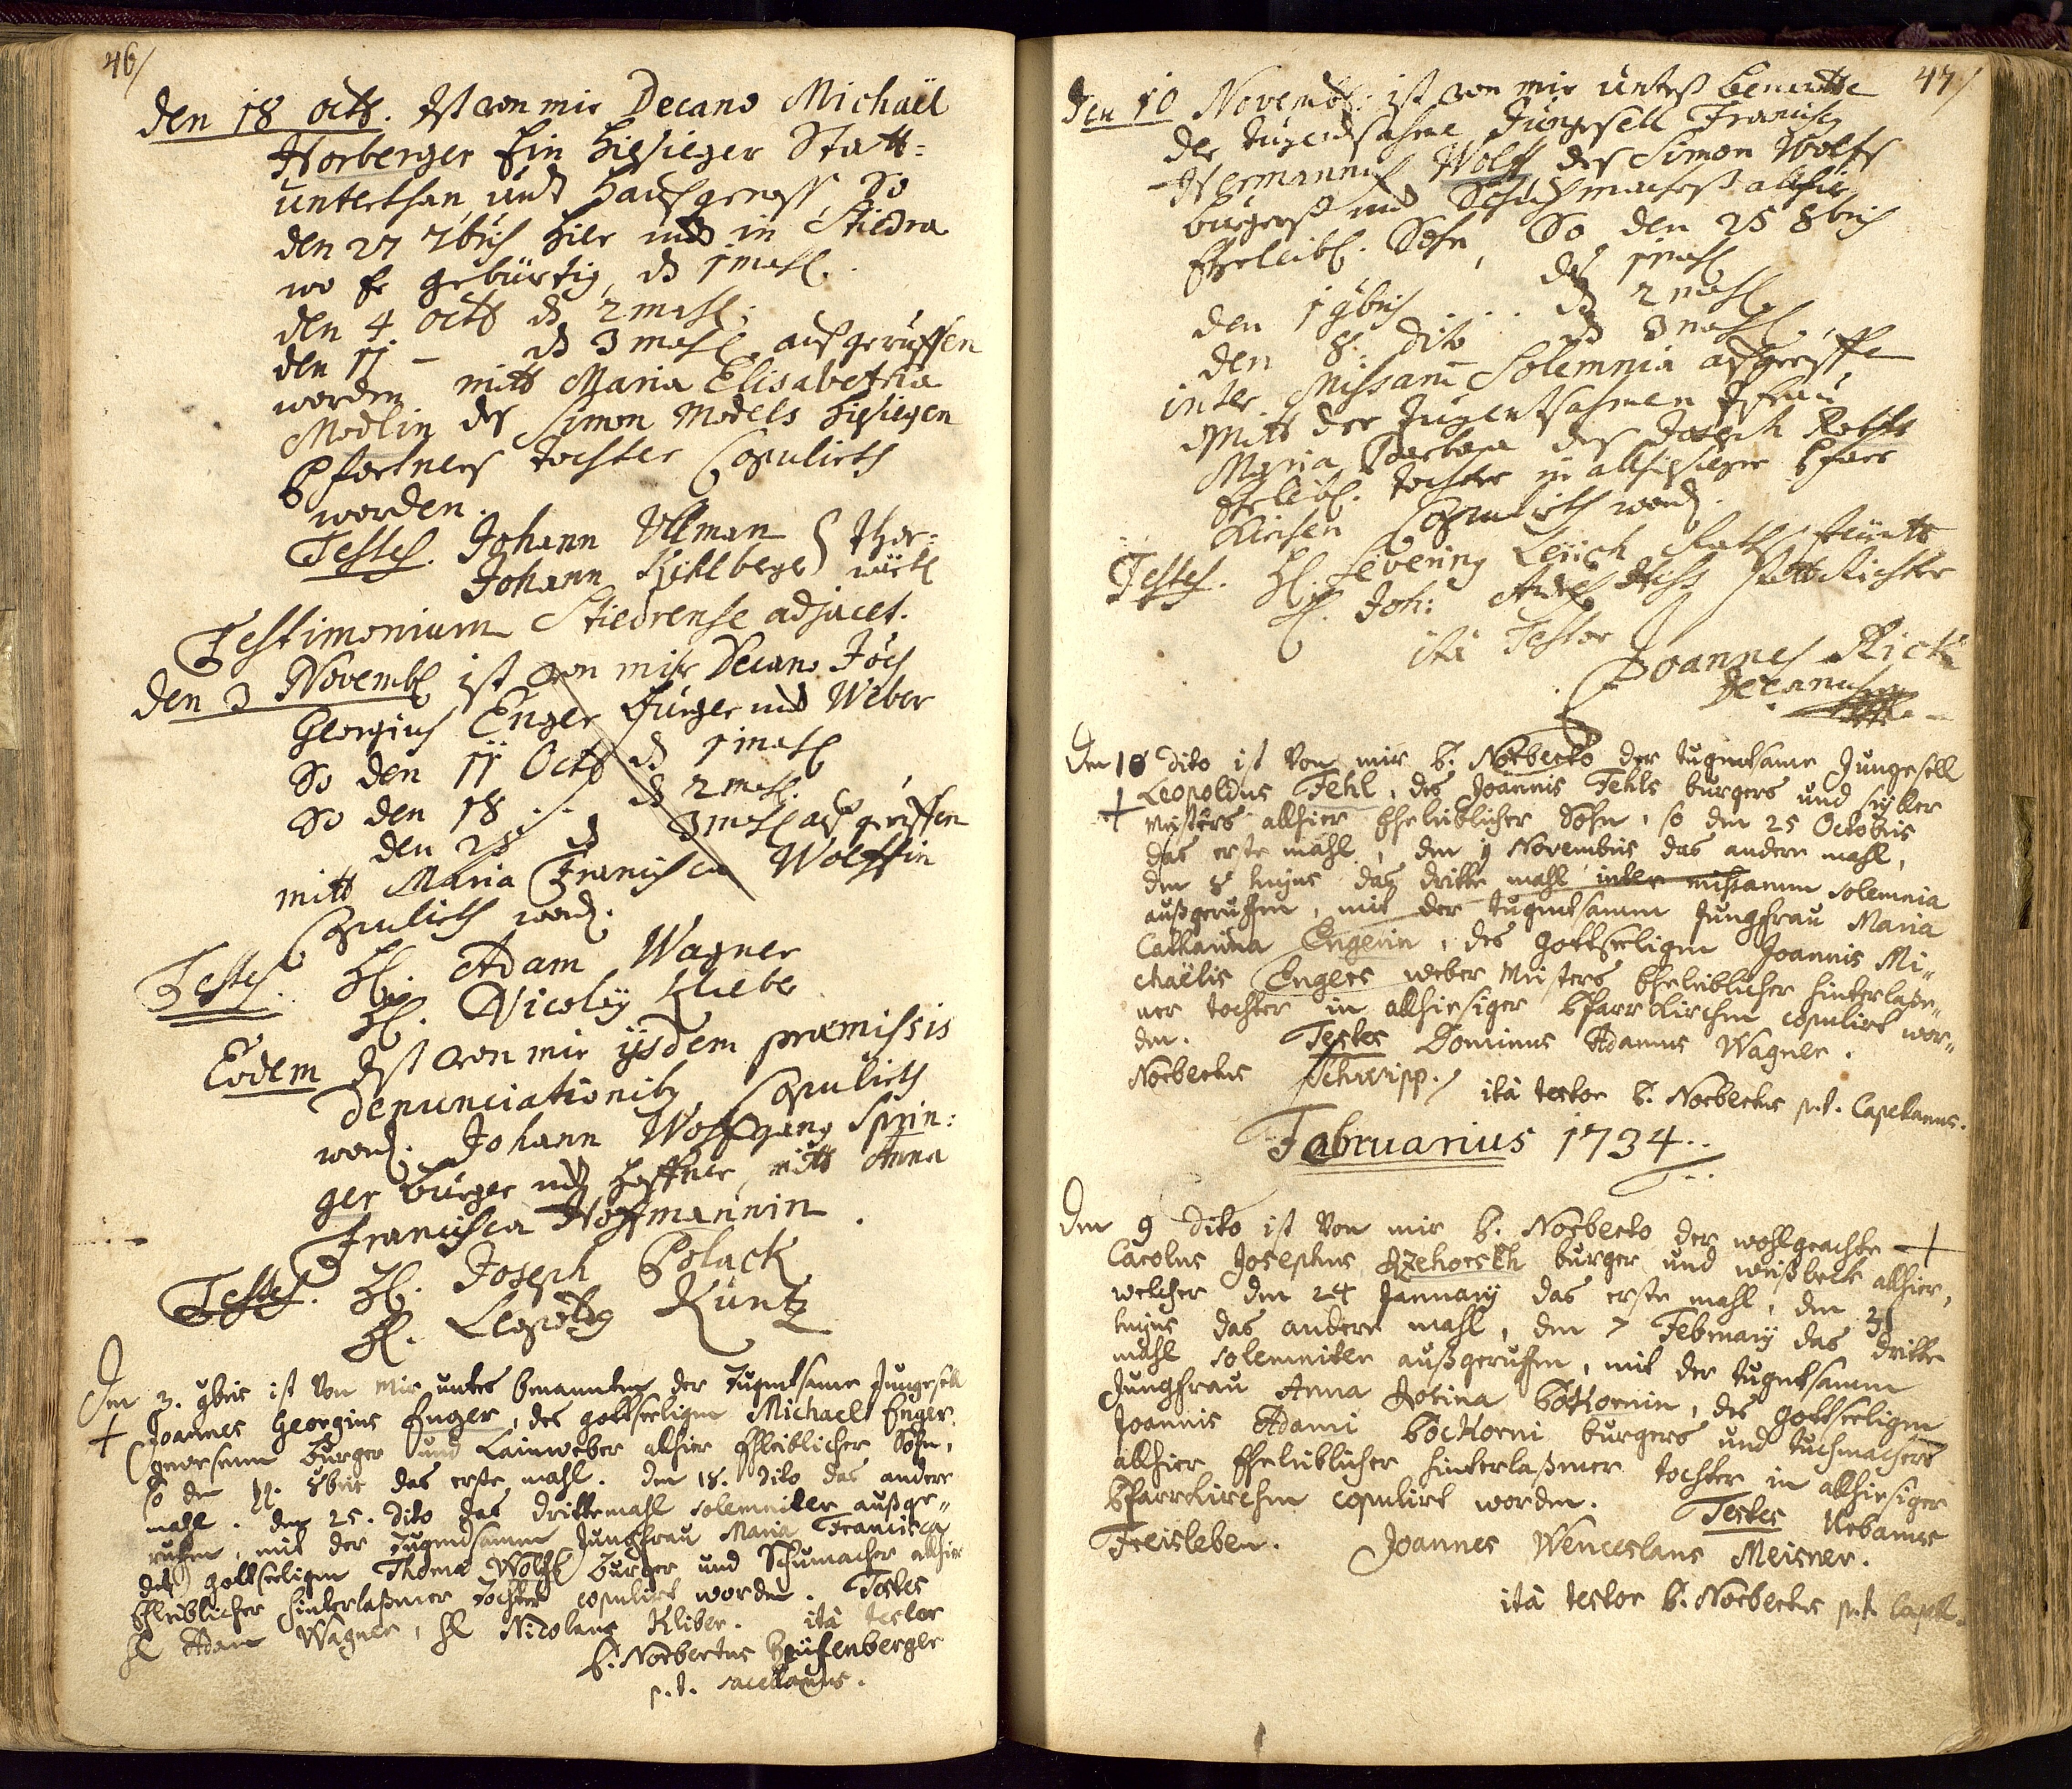 46/
den 18 octb. Ist von mir Decano Michaël
Horberger Ein hiesieger Statt=
unterthan und Haußgenoss, So
den 27 7bris hier und in Stiedra
wo Er gebürtig, ds 1 mahl.
den 4 octb ds 2 mahl.
den 11 – ds 3 mahl außgeruffen
worden mitt Maria Elisabetha
Modlin des Simon Models hiesiegen
Pfortners tochter Copulirth
worden.
Testes. Johann Ullman } Thor=
Johann
Testimonium Stiedrense adjacet.
den 3 Novemb ist von mir Decano Joës
Georgius Enger Burger und Weber
So den 11 Octb ds 1 mahl
So den 18 .. ds 2 mahl.
den 25 ds 3 mahl außgeruffen
mitt Maria Francisca Wolffin
Copulirth word.
Testes. H. Adam Wagner
H. Nicolaÿ Klieber
Eodem Ist von mir ijsdem præmissis
denunciationibus Copulirth
word. Johann Wolffgang Sprin=
ger burger und Haffner, mitt Anna
Francisca Hoffmannin.
Testes. H. Joseph Polack
H. Leopold Kuntz
Den 3. 9bris ist Von Mir untes benannten der Tugentsame Jungesell
+ Joannes Georgius Enger, des gottseeligen Michael Enger
gewesenen Burger und Lainweber alhier Eheleiblicher Sohn,
so den 11. 8bris das erste mahl. den 18. dito das andere
mahl. den 25. dito das drittemahl solemniter außge„
ruffen, mit der Tugendsamen Jungfrau Maria Francisca
des gottseeligen Thoma Wolff Burger und Schumacher allhier
Eheleiblicher hinterlaßener Tochter copulirt worden. Testes
H Adam Wagner, H Nicolaus Kliber. ità testor
P. Norbertus
p.t. sacellanus.
47/
den 10 Novemb: ist von mir unteß benente
der tugendsahme Jungesell Franciscus
Hermannus Wolff des Simon Wolfs
burgerß und Schuhmacherß allhier
Eheleibl. Sohn, So den 25 8bris
das 1 mahl
den 1 9bris ... ds 2 mahl.
den 8. dito ds 3 mahl.
inter Missarum Solemnia außgeruffe
Mitt der tugentsahmen Jfrau
Maria Barbara des Joseph
Eheleibl. tochter in allhiesieger Pfarr
Kirchen Copulirth word.
Testes. H. Severing Raths
H. Joh: Statt Richter
ità Testor
Joannes Rick
Decanus
Den 10 dito ist Von mir P. Norberto der tugentsame Jungesell
+ Leopoldus Fehl, des Joannis Fehls burgers und
Meisters allhier Eheleiblicher Sohn, so den 25 Octobris
das erste mahl, den 1 Novembris das andere mahl,
den 8 hujus das dritte mahl inter missarum solemnia
außgeruffen, mit der tugentsamen Jungfrau Maria
Catharina Engerin, des gottseeligen Joannis Mi„
chaëlis Engers weber Meisters Eheleiblicher hinterlaße„
ner tochter in allhiesiger Pfarrkirchen copulirt wor„
den. Testes Dominus Adamus Wagner.
Norbertus Schweipp. ità testor P. Norbertus p.t. Capellanus.
Februarius 1734..
Den 9 dito ist Von mir P. Norberto der wohlgeachte +
Carolus Josephus Rzehorskh burger und weißbeck allhier,
welcher den 24 Januarij das erste mahl, den 31
hujus das andere mahl, den 7 Februarij das dritte
mahl solemniter außgeruffen, mit der tugentsamen
Jungfrau Anna Rosina Böckornin, des gottseeligen
Joannis Adami Böckorni burgers und tuchmachers
allhier Eheleiblicher hinterlaßener tochter in allhiesiger
Pfarrkirchen copulirt worden. Testes Urbanus
Freisleben. Joannes Wenceslaus Meisner.
ità testor P. Norbertus p.t. Capell.